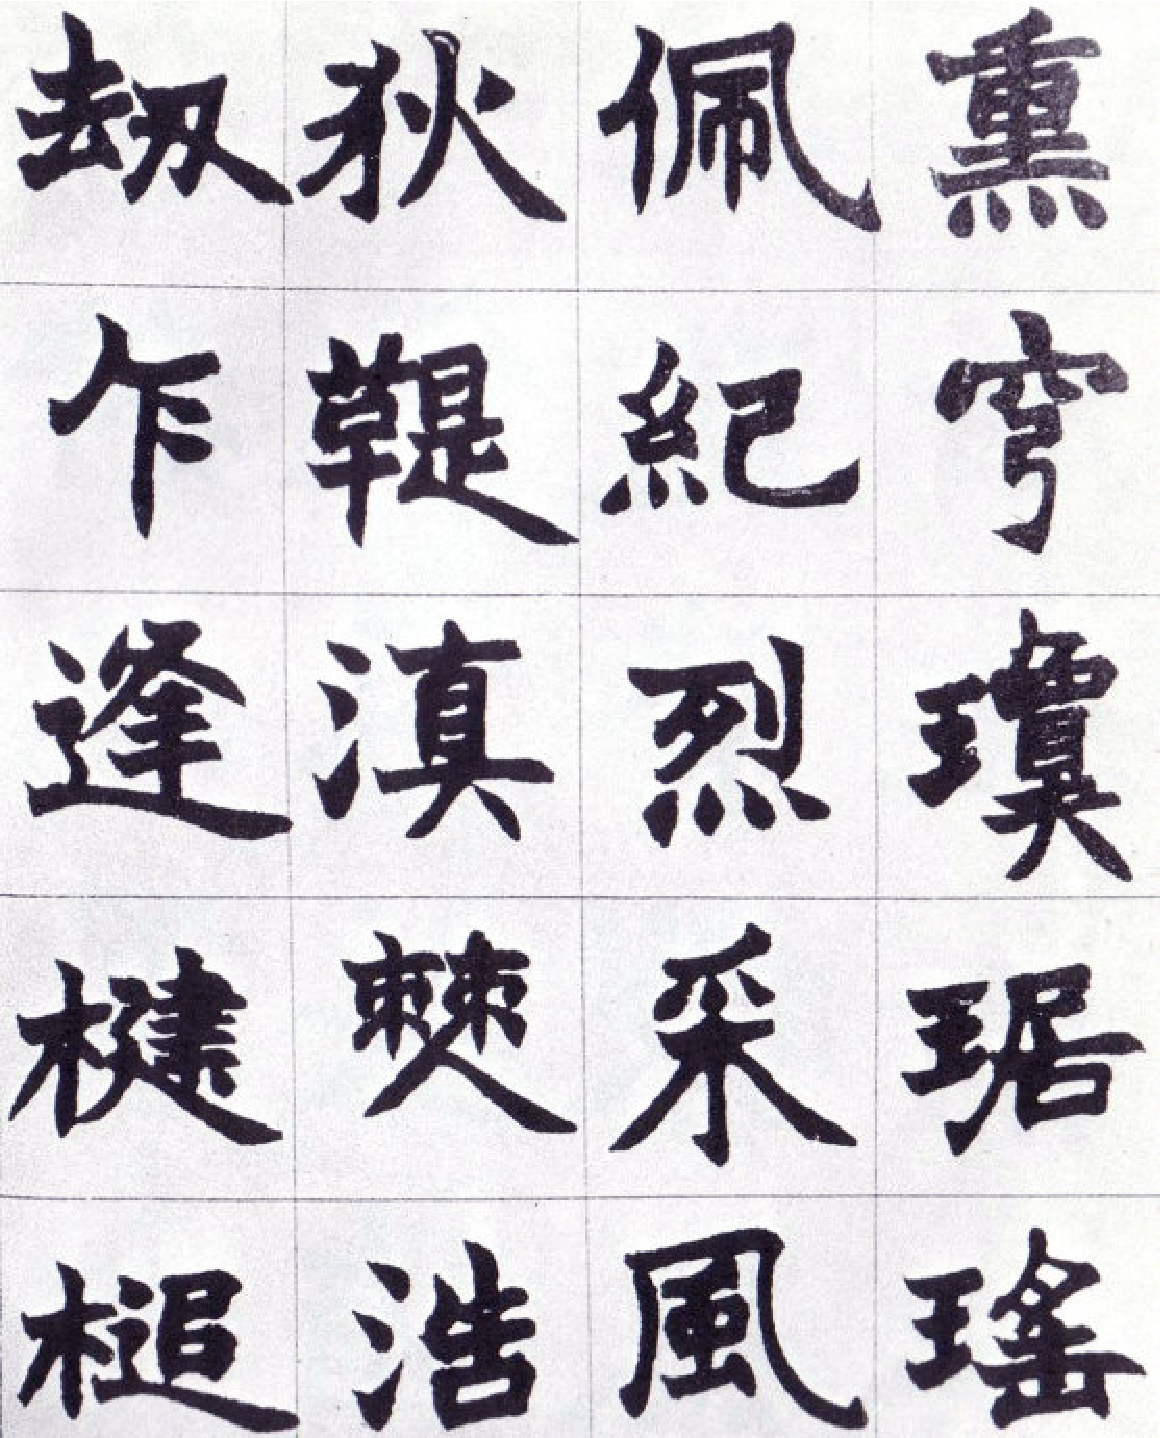 熏穹瓊琚瑤
佩紀烈采風
狄鞮滇僰浩
劫乍逢楗槌